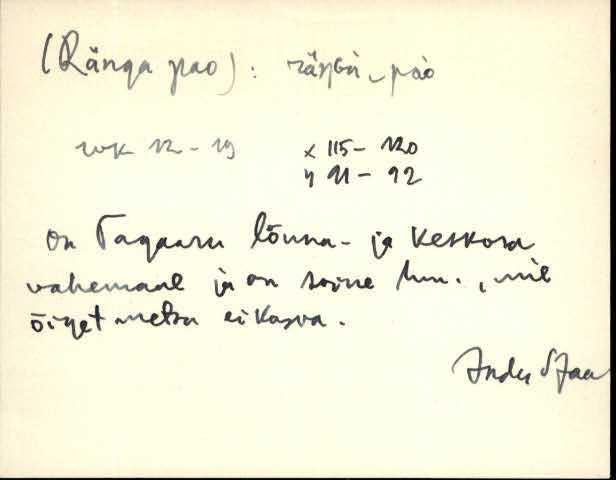 (Ränga pao): räŋGa_pào
wk 12-19 x 115-120
y 91-92
on Tagaaru lõuna- ja keskosa
vahemaal ja on soine hm., mil
õiget metsa ei kasva.